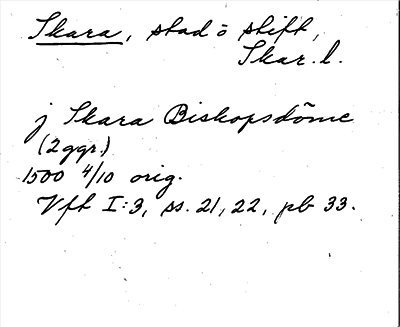 Skara, stad o stift,
Skar. l.
j Skara Biskopsdöme
(2 ggr.)
1500 4/10 orig.
Vft I:3, ss. 21, 22, pb 33.